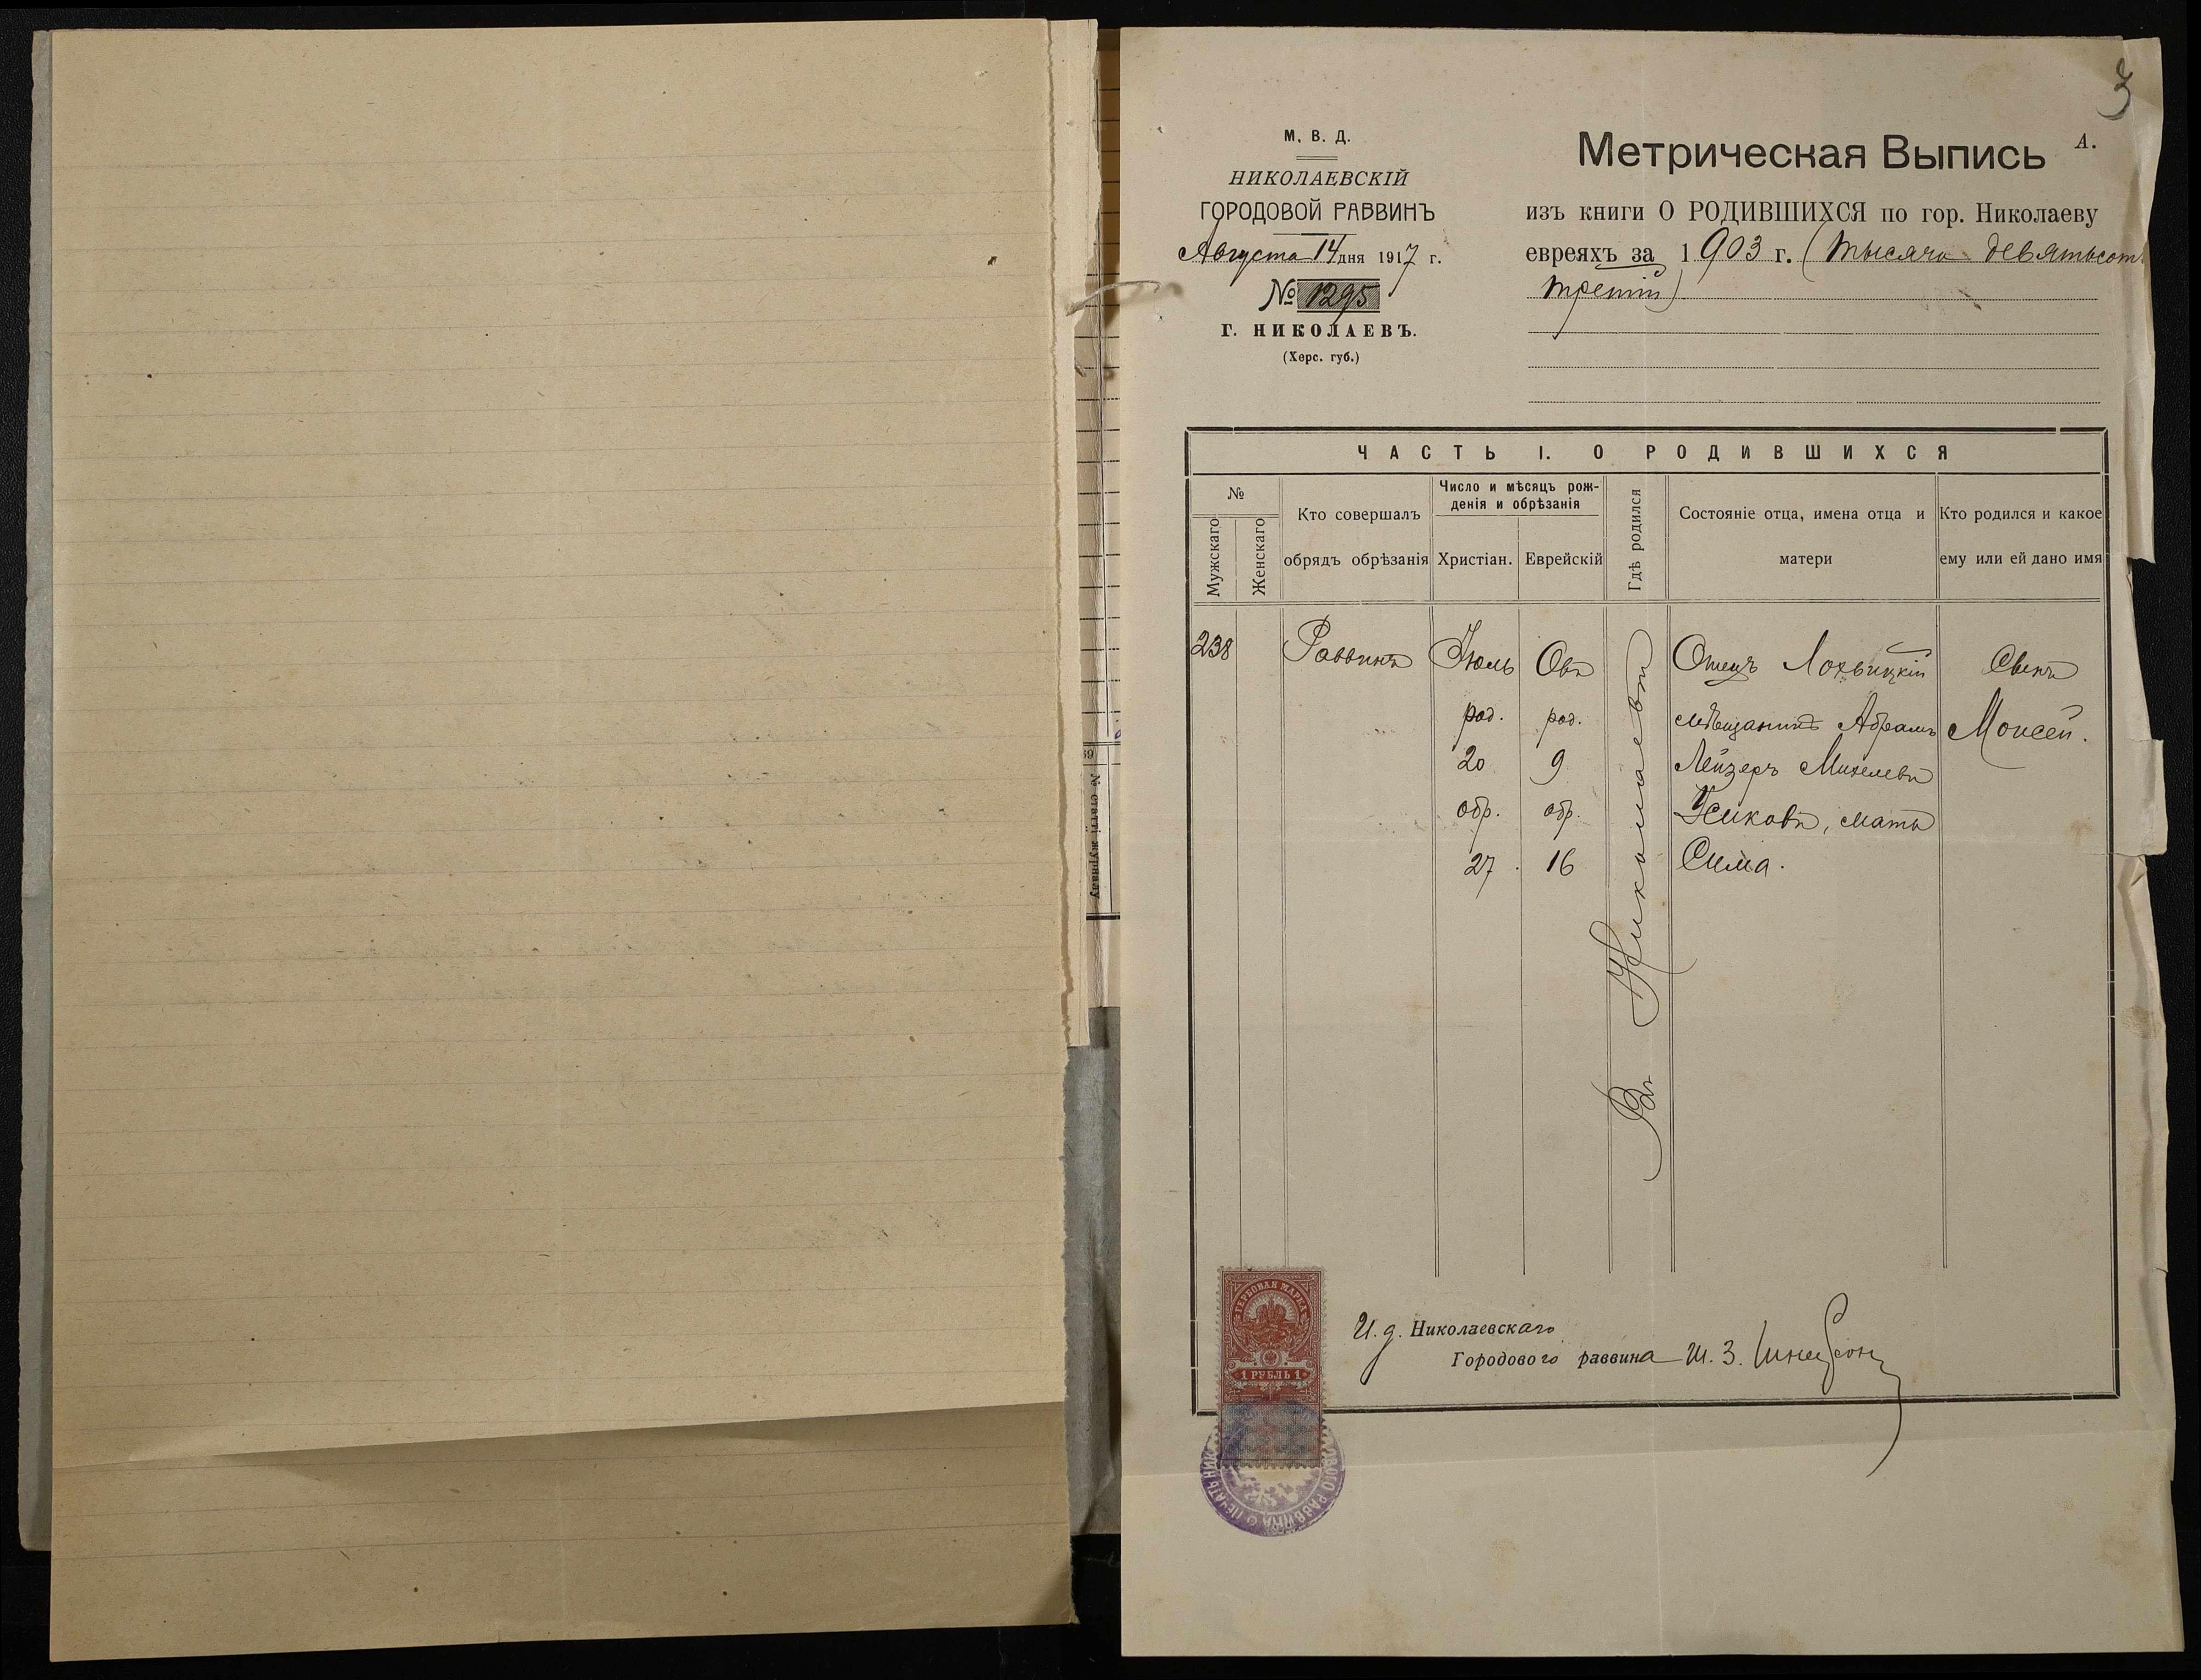 3
М. В. Д.
НИКОЛАЕВСКІЙ
ГОРОДОВОЙ РАВВИНЪ
Августа 14 дня 1917 г.
№ 1295
Г. НИКОЛАЕВЪ.
(Херс. губ.)
Метрическая Выпись А.
изъ книги О РОДИВШИХСЯ по гор. Николаеву
евреяхъ за 1903 г. (тысяча девятьсотъ
третій)
ЧАСТЬ I. О РОДИВШИХСЯ
№
Мужскаго
Женскаго
Кто совершалъ
обрядъ обрѣзанія
Число и мѣсяцъ рож-
денія и обрѣзанія
Христіан.
Еврейскій
Гдѣ родился
Состояніе отца, имена отца и
матери
Кто родился и какое
ему или ей дано имя
238
Раввинъ
Іюль
род.
20
обр.
27
Овъ
род.
9
обр.
16
Въ Николаевѣ
Отецъ Лохвицкій
мѣщанинъ Абрамъ
Лейзеръ Михелевъ
Усиковъ, мать
Сима.
Сынъ
Моисей.
И. д. Николаевскаго
Городового раввина Ш. З. Шнеерсонъ
ГЕРБОВАЯ МАРКА
1 РУБЛЬ 1
ПЕЧАТЬ НИК
ОВОГО РАВВИНА
39
№ статті журналу